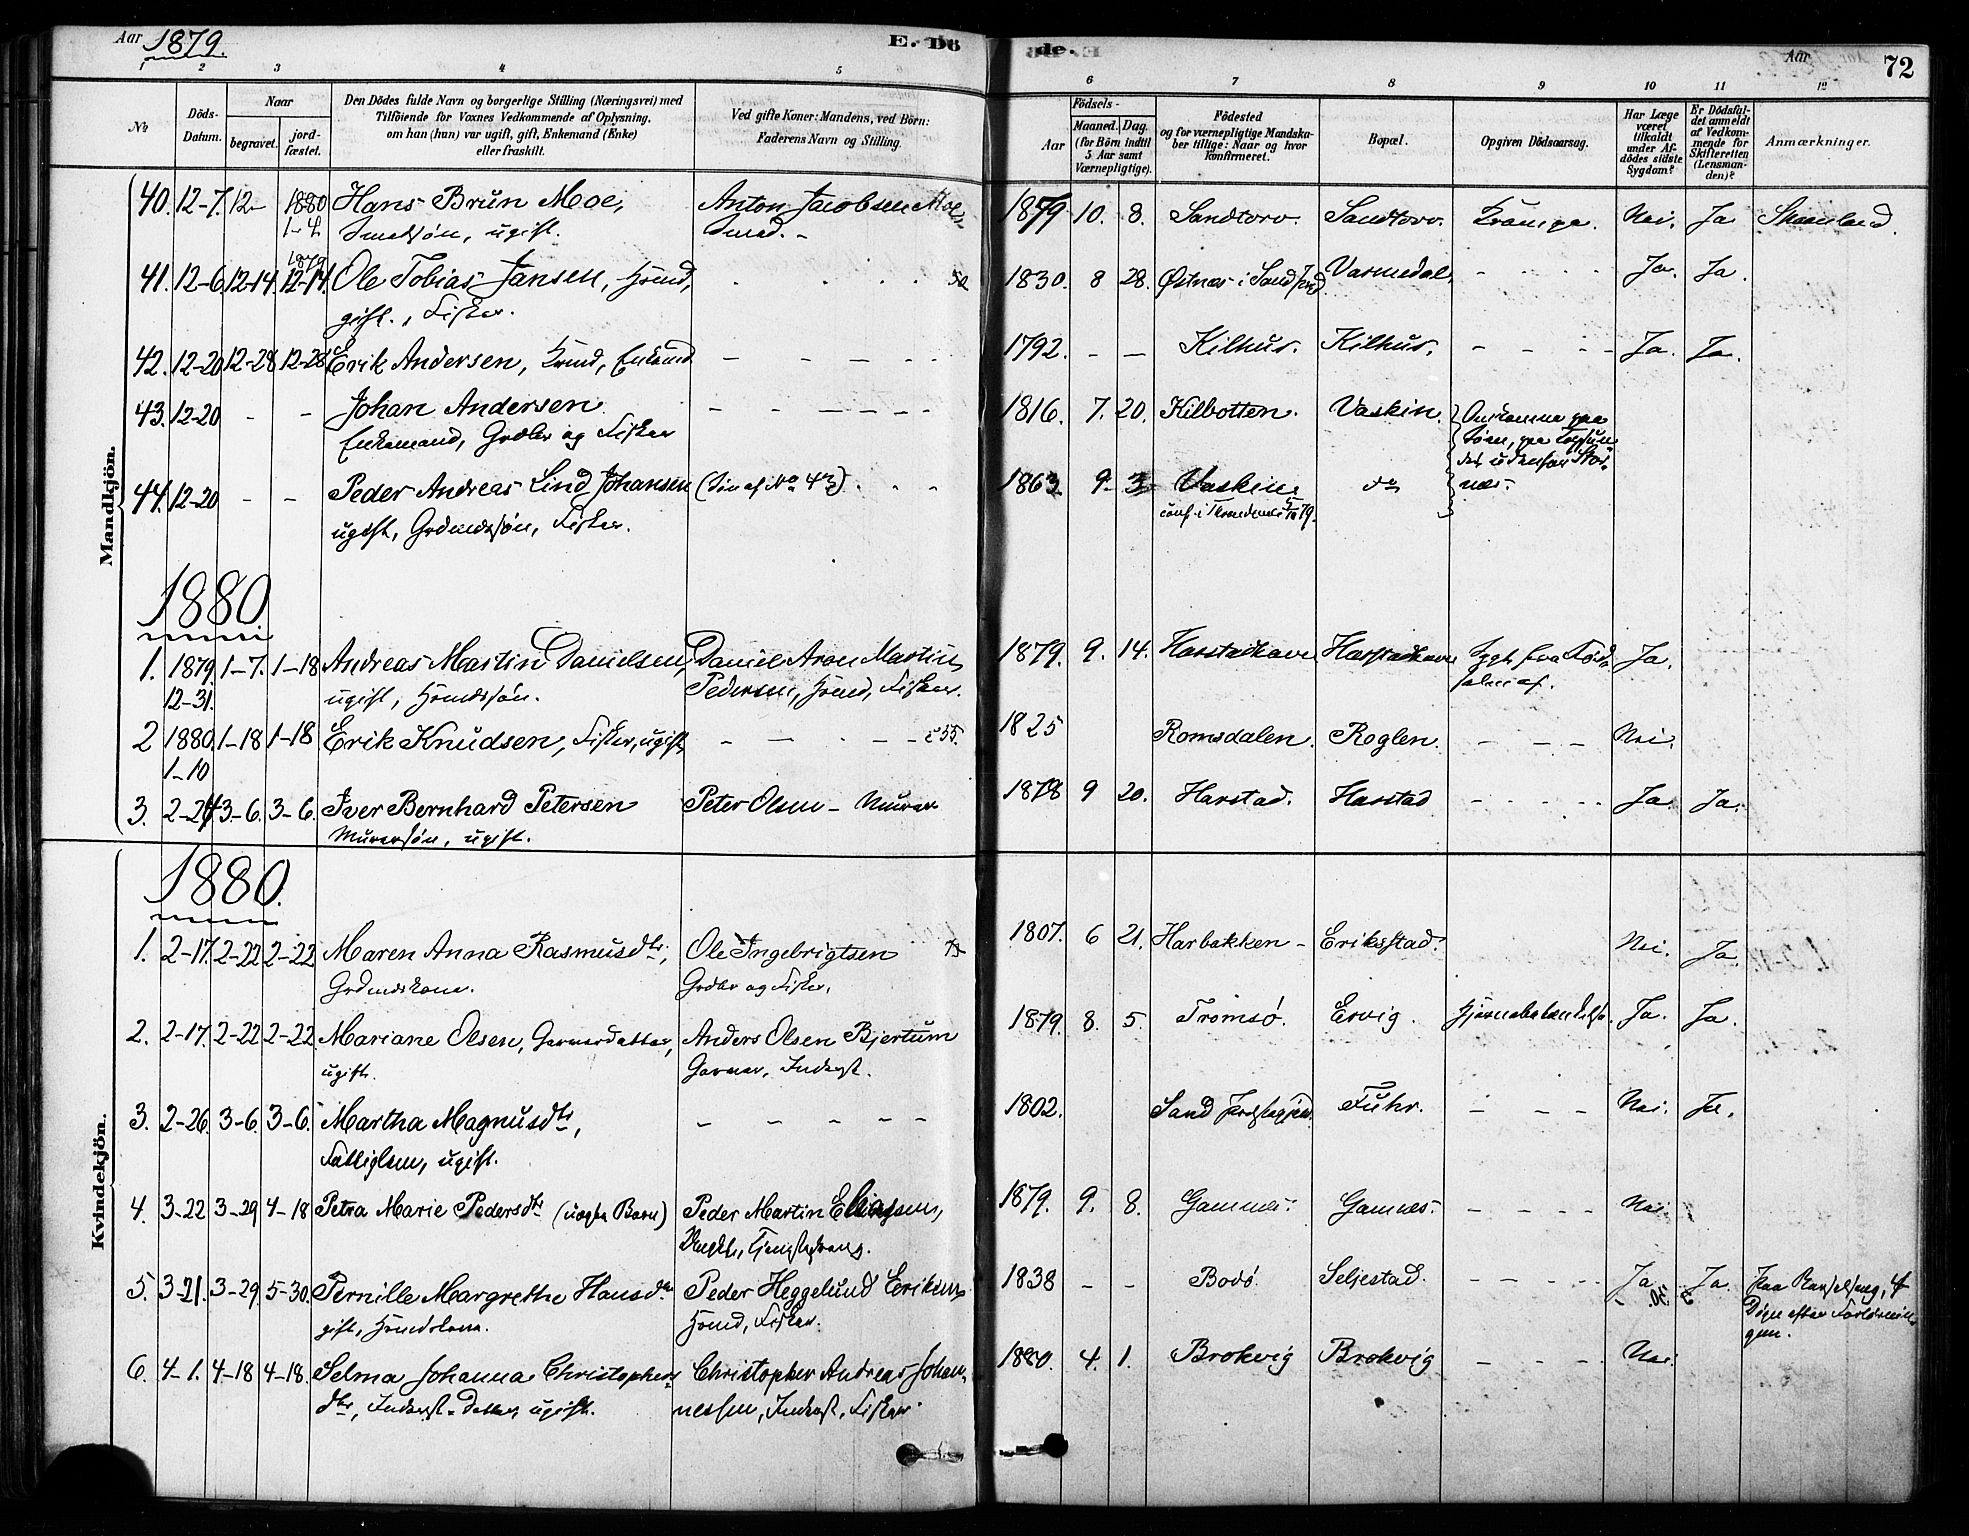 Aar 1879.
E. Dö
de. E
Aar
72
1 2 3 4 5 6 7 8 9 10 11 12
No
Döds-
Datum.
Naar
begravet.
jord-
fæstet.
Den Dödes fulde Navn og borgerlige Stilling (Næringsvei) med
Tilföiende for Voxnes Vedkommende af Oplysning,
om han (hun) var ugift, gift, Enkemand (Enke)
eller fraskilt.
Ved gifte Koner: Mandens, ved Börn:
Faderens Navn og Stilling.
Födsels-
Aar
Maaned. Dag.
(for Börn indtil
5 Aar samt
Værnepligtige).
Födested
og for værnepligtige Mandska-
ber tillige: Naar og hvor
konfirmeret.
Bopæl.
Opgiven Dödsaarsag.
Har Læge
været
tilkaldt
under Af-
dödes sidste
Sygdom?
Er Dödsfal-
det anmeldt
af Vedkom-
mende for
Skifteretten
(Lensman-
den)?
Anmærkninger.
Mandkjön.
40. 12-7. 12- 1880 Hans Brun Moe, Anton Jacobsen Moe, 1879 10. 8. Sandtorv. Sandtorv. Krampe. Nei. Ja Skaanland.
1-4. Smedsøn, ugift. Smed. -
1879
41. 12-6 12-14. 12-14. Ole Tobias Jansen, Hsmd, 50 1830. 8 28. Østnæs i Sand Varmedal. - - - - Ja. Ja.
gift., Fisker.
42. 12-20 12-28 12-28 Erik Andersen, Enkemd. - - - - - 1792. - - Kilhus. Kilhus. - - - - Ja. Ja.
43. 12-20 - - Johan Andersen - - - - - - 1816. 7. 20. Kilbotten. Vaskin. Omkomne paa
Enkemand, Grdbr og Fisker Søen, paa
44. 12-20 - - Peder Andreas Lind Johansen (Søn af No 43) - - 1863. 9. 3. Vaskin. do
ugift, Grdmdssøn, Fisker. conf. i Trondenes 79.
1880
1. 1879. 1-7. 1-18 Andreas Martin Danielsen, Daniel Aron Martin 1879. 9. 14. Harstadhavn Harstadhavn Sygt fra Fød- Ja.
12-31. ugift, Hsmdssøn. Pedersen, Hsmd, Fisker. selen af.
2 1880 1-18 1-18 Erik Knudsen, Fisker, ugift - - - - c 55. 1825 Romsdalen. Roglen. - - - Nei.
1-10
3. 2-24 3-6. 3-6. Iver Bernhard Petersen Peter Olsen - Murer 1878 9 20. Harstad. Harstad - - - - Ja. Ja.
Murersøn, ugift.
Kvindekjön.
1880.
1. 2-17. 2-22 2-22. Maren Anna Rasmusdtr, Ole Ingebrigtsen 73 1807. 6 21. Harbakken - Erikstad. Nei. Ja.
Grdmdskone. Grdbr og Fisker.
2. 2-17. 2-22 2-22 Mariane Olsen, Garverdatter, Anders Olsen Bjertum 1879. 8. 5. Tromsø. Ervig. Hjernebetændelse. Ja. Ja.
ugift. Garver, Inderst.
3. 2-26. 3-6. 3-6. Martha Magnusdtr, - - - - - 1802. Sand Fuhr. - - - Nei. Ja.
Fattiglem, ugift.
4. 3-22 3-29 4-18 Petra Marie Pedersdtr (uægte Barn) Peder Martin Eliassen, 1879. 9. 8. Gamnes. Gamnes. - - - - Nei.
Ungkl., Tjenestedreng.
5. 3-21. 3-29. 5-30. Pernille Margrethe Hansdtr Peder Heggelund Eriksen 1838 - - Bodø. Seljestad. - - - - Ja Ja. paa Barselseng, 4
gift, Hsmdskone. Hsmd, Fisker. Døgn efter Forløsnin-
gen.
6. 4-1. 4-18 4-18. Selma Johanna Christophers- Christopher Andreas Johan- 1880. 4. 1. Brokvig Brokvig - - - Nei.
dtr, Inderst-Datter, ugift. nessen, Inderst, Fisker.